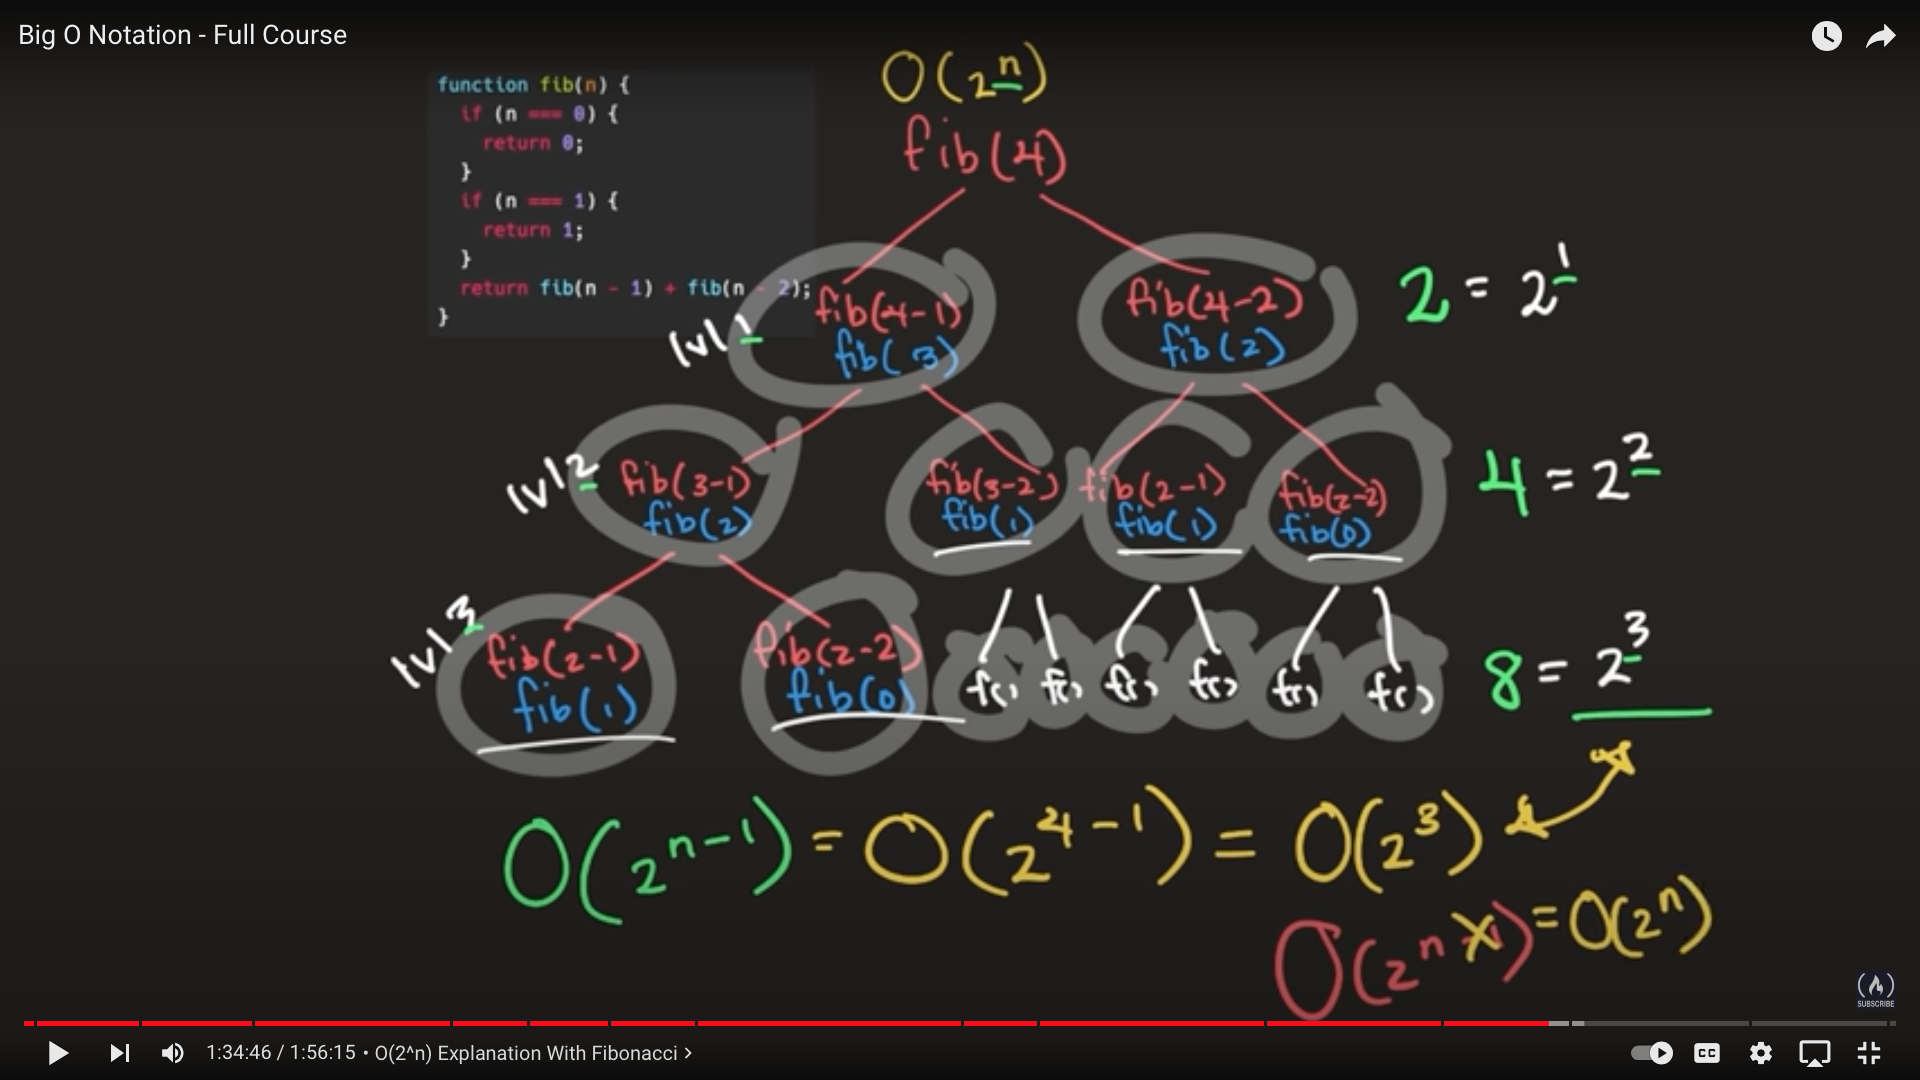 Big O Notation - Full Course
O(2^n)
function fib(n) {
if (n === 0) {
return 0;
}
if (n === 1) {
return 1;
}
return fib(n - 1) + fib(n - 2);
}
fib(4)
lvl 1
fib(4-1)
fib(3)
fib(4-2)
fib(2)
2 = 2^1
lvl 2
fib(3-1)
fib(2)
fib(3-2)
fib(1)
fib(2-1)
fib(1)
fib(2-2)
fib(0)
4 = 2^2
lvl 3
fib(2-1)
fib(1)
fib(2-2)
fib(0)
f() f() f() f() f() f()
8 = 2^3
O(2^n-1) = O(2^4-1) = O(2^3)
O(2^n-1) = O(2^n)
SUBSCRIBE
1:34:46 / 1:56:15 • O(2^n) Explanation With Fibonacci >
CC